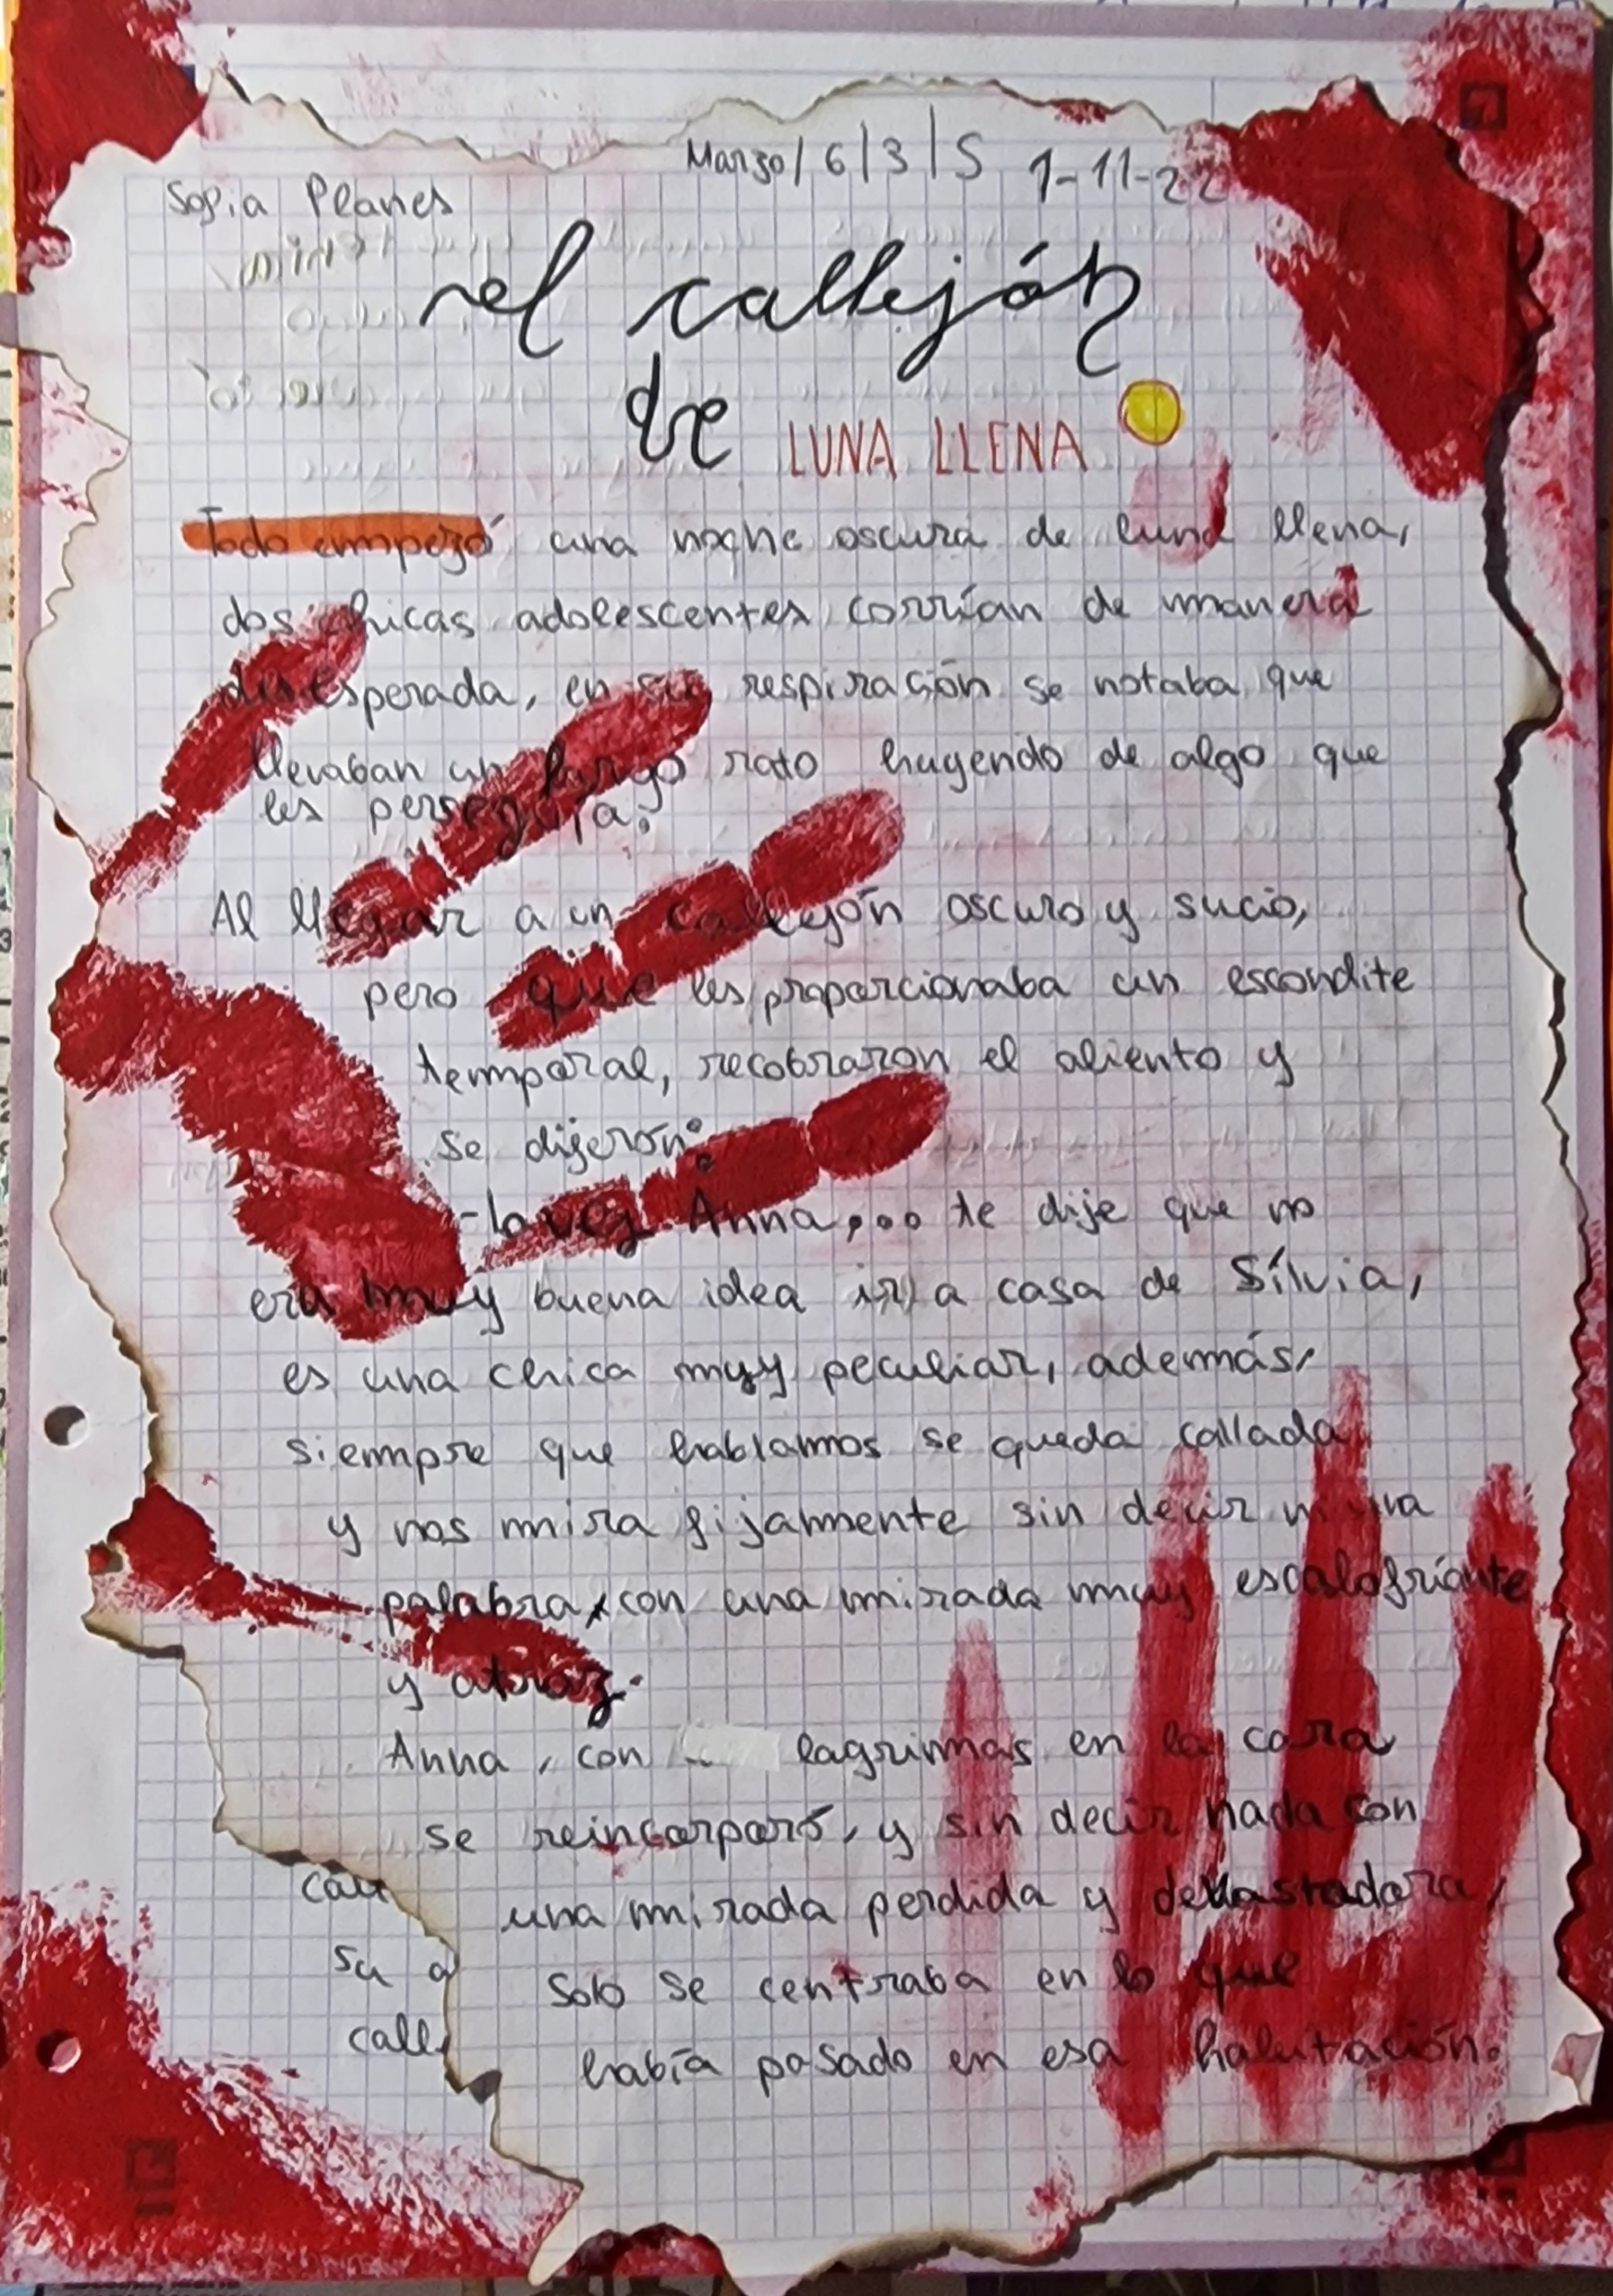 Marzo/6/3/S 1-11-22
Sofia Planes
el callejón
de LUNA LLENA
Todo empezó una noche oscura de luna llena,
dos chicas adolescentes corrían de manera
desesperada, en su respiración se notaba que
llevaban un largo rato huyendo de algo que
les perseguía.
Al llegar a un callejón oscuro y sucio,
pero que les proporcionaba un escondite
temporal, recobraron el aliento y
se dijeron:
-lo ves Anna,... te dije que no
era muy buena idea ir a casa de Sílvia,
es una chica muy peculiar, además,
siempre que hablamos se queda callada
y nos mira fijamente sin decir una
palabra, con una mirada muy escalofriante
y atroz.
Anna, con lagrimas en la cara
se reincorporó, y sin decir nada con
una mirada perdida y devastadora,
solo se centraba en lo que
había pasado en esa habitación.
cau
su a
call